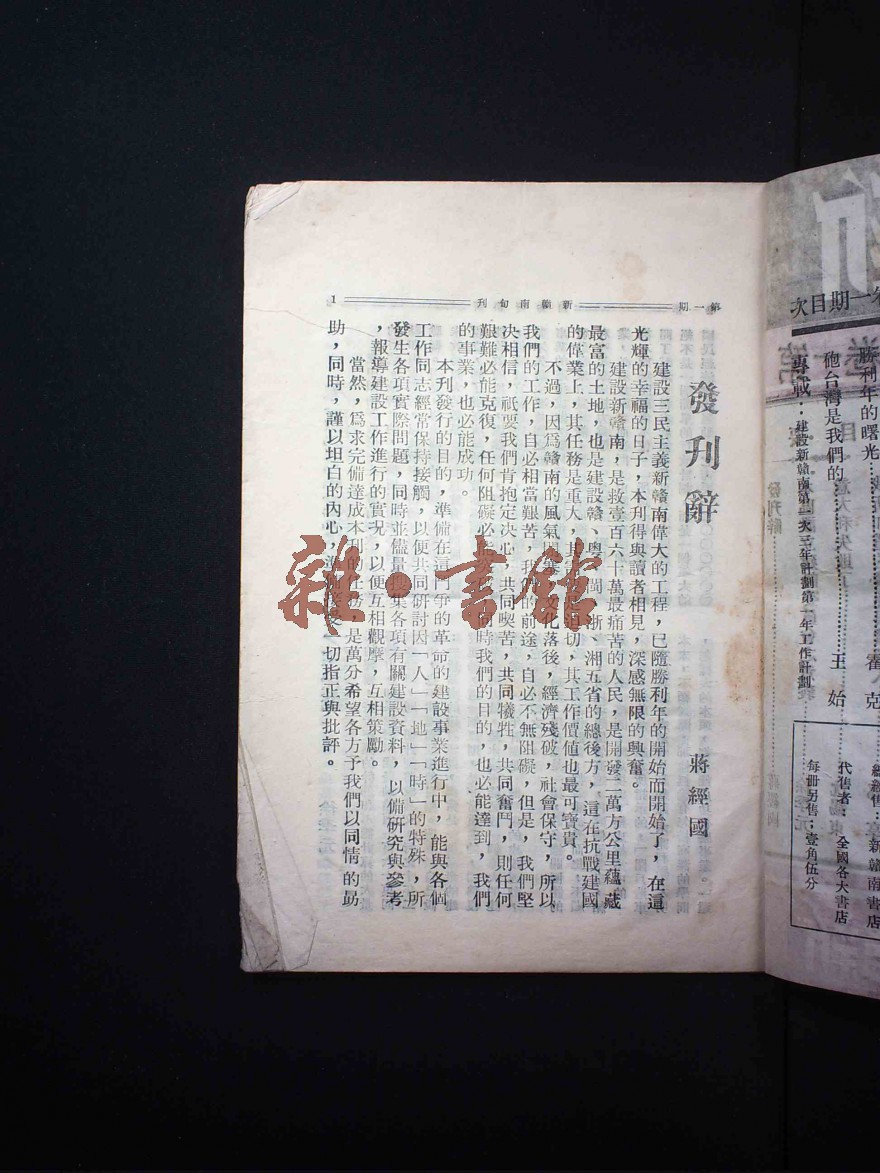 第一期 新贛南旬刊 1
發刊辭
蔣經國
建設三民主義新贛南偉大的工程，已隨勝利年的開始而開始了，在這
光輝的幸福的日子，本刊得與讀者相見，深感無限的興奮。
建設新贛南，是救壹百六十萬最痛苦的人民，是開發二萬方公里蘊藏
最富的土地，也是建設贛、粵、閩、浙、湘五省的總後方，這在抗戰建國
的偉業上，其任務是重大，其 迫切，其工作價值也最可寶貴。
不過，因爲贛南的風氣 文化落後，經濟殘破，社會保守，所以
我們的工作，自必相當艱苦，我 的前途，自必不無阻礙，但是，我們堅
決相信，祇要我們肯抱定決心，共同喫苦，共同犧牲，共同奮鬥，則任何
艱難必能克復，任何阻礙必能 同時我們的目的，也必能達到，我們
的事業，也必能成功。
本刊發行的目的，準備在這鬥爭的革命的建設事業進行中，能與各個
工作同志經常保持接觸，以便共同研討因「人」「地」「時」的特殊，所
發生各項實際問題，同時並儘量搜集各項有關建設資料，以備研究與參考
，報導建設工作進行的實況，以便互相觀摩，互相策勵。
當然，爲求完備達成本刊的任務，是萬分希望各方予我們以同情的勗
助，同時，謹以坦白的內心， 一切指正與批評。
雜·書館
一期目次
勝利年的曙光 霍 克
砲台灣是我們的 王 始
專載：建設新贛南第一次三年計劃第一年工作計劃
新贛南書店
代售者：全國各大書店
每冊另售：壹角伍分